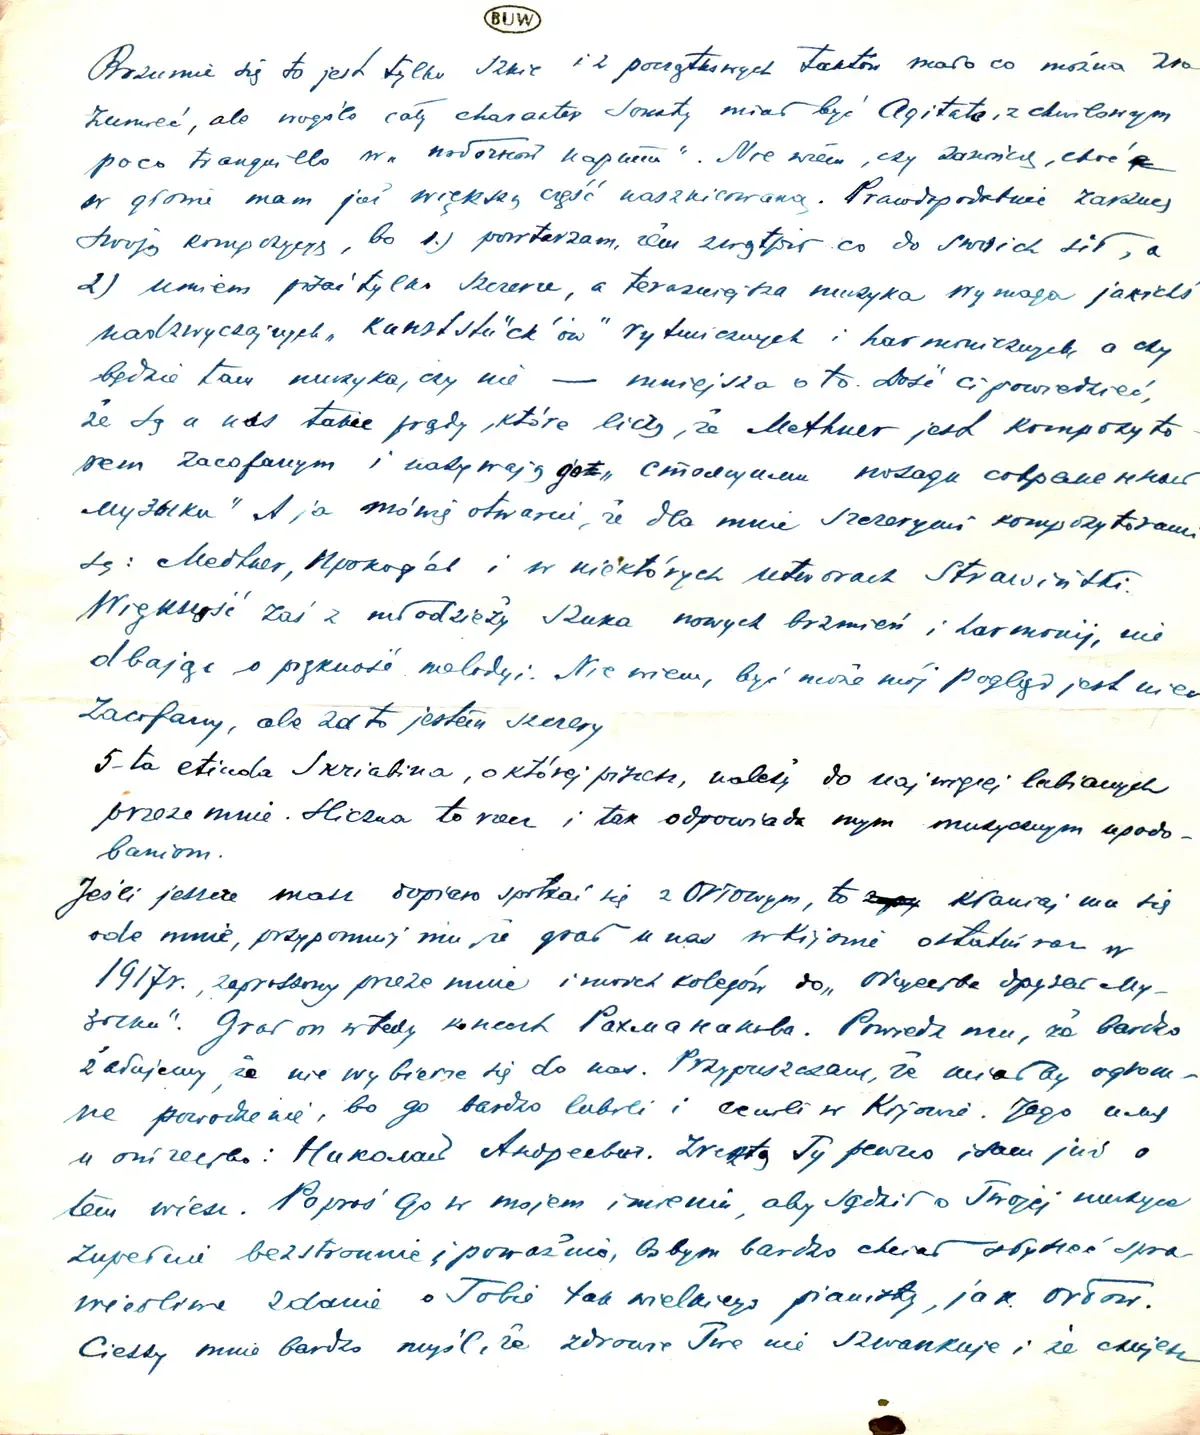 BUW
Rozumie się to jest tylko szkic i z początkowych taktów mało co można zro
zumieć, ale wogóle cały charakter Sonaty miał być Agitato, z chwilowym
poco tranquillo w „ ". Nie wiem, czy zakończę, choć
w głowie mam już większą część naszkicowaną. Prawdopodobnie zarzucę
swoją kompozycję, bo 1.) powtarzam, żem zwątpił co do swoich sił, a
2) umiem pisać tylko szczerze, a teraźniejsza muzyka wymaga jakichś
nadzwyczajnych „Kunststück'ów" rytmicznych i harmonicznych, a czy
będzie tam muzyka, czy nie — mniejsza o to. Dość Ci powiedzieć,
że są u nas takie prądy, które liczą, że Methner jest kompozyto-
rem zacofanym i nazywają go „ позади современной
музыки" A ja mówię otwarcie, że dla mnie szczerymi kompozytorami
są: Medtner, Прокофьев i w niektórych utworach Strawiński.
Większość zaś z młodzieży szuka nowych brzmień i harmonij, nie
dbając o piękność melodyi. Nie wiem, być może mój pogląd jest nieco
zacofany, ale zato jestem szczery
5-ta etiuda Skriabina, o której piszesz, należy do najwięcej lubianych
przeze mnie. Śliczna to rzecz i tak odpowiada mym muzycznym upodo-
baniom.
Jeśli jeszcze masz dopiero spotkać się z Orłowym, to kłaniaj mu się
ode mnie, przypomnij mu, że grał u nas w Kijowie ostatni raz w
1917 r., zaproszony przeze mnie i moich kolegów do „Общества друзей му-
зыки". Grał on wtedy koncert Рахманинова. Powiedz mu, że bardzo
żałujemy, że nie wybierze się do nas. Przypuszczam, że miałby ogrom-
ne powodzenie, bo go bardzo lubili i cenili w Kijowie. Jego imię
i отчество: Николай Андреевич. Zresztą Ty pewno i sam już o
tem wiesz. Poproś Go w mojem imieniu, aby sądził o Twojej muzyce
zupełnie bezstronnie i poważnie, bobym bardzo chciał słyszeć spra-
wiedliwe zdanie o Tobie tak wielkiego pianisty, jak Orłow.
Cieszy mnie bardzo myśl, że zdrowie Twe nie szwankuje i że chcesz